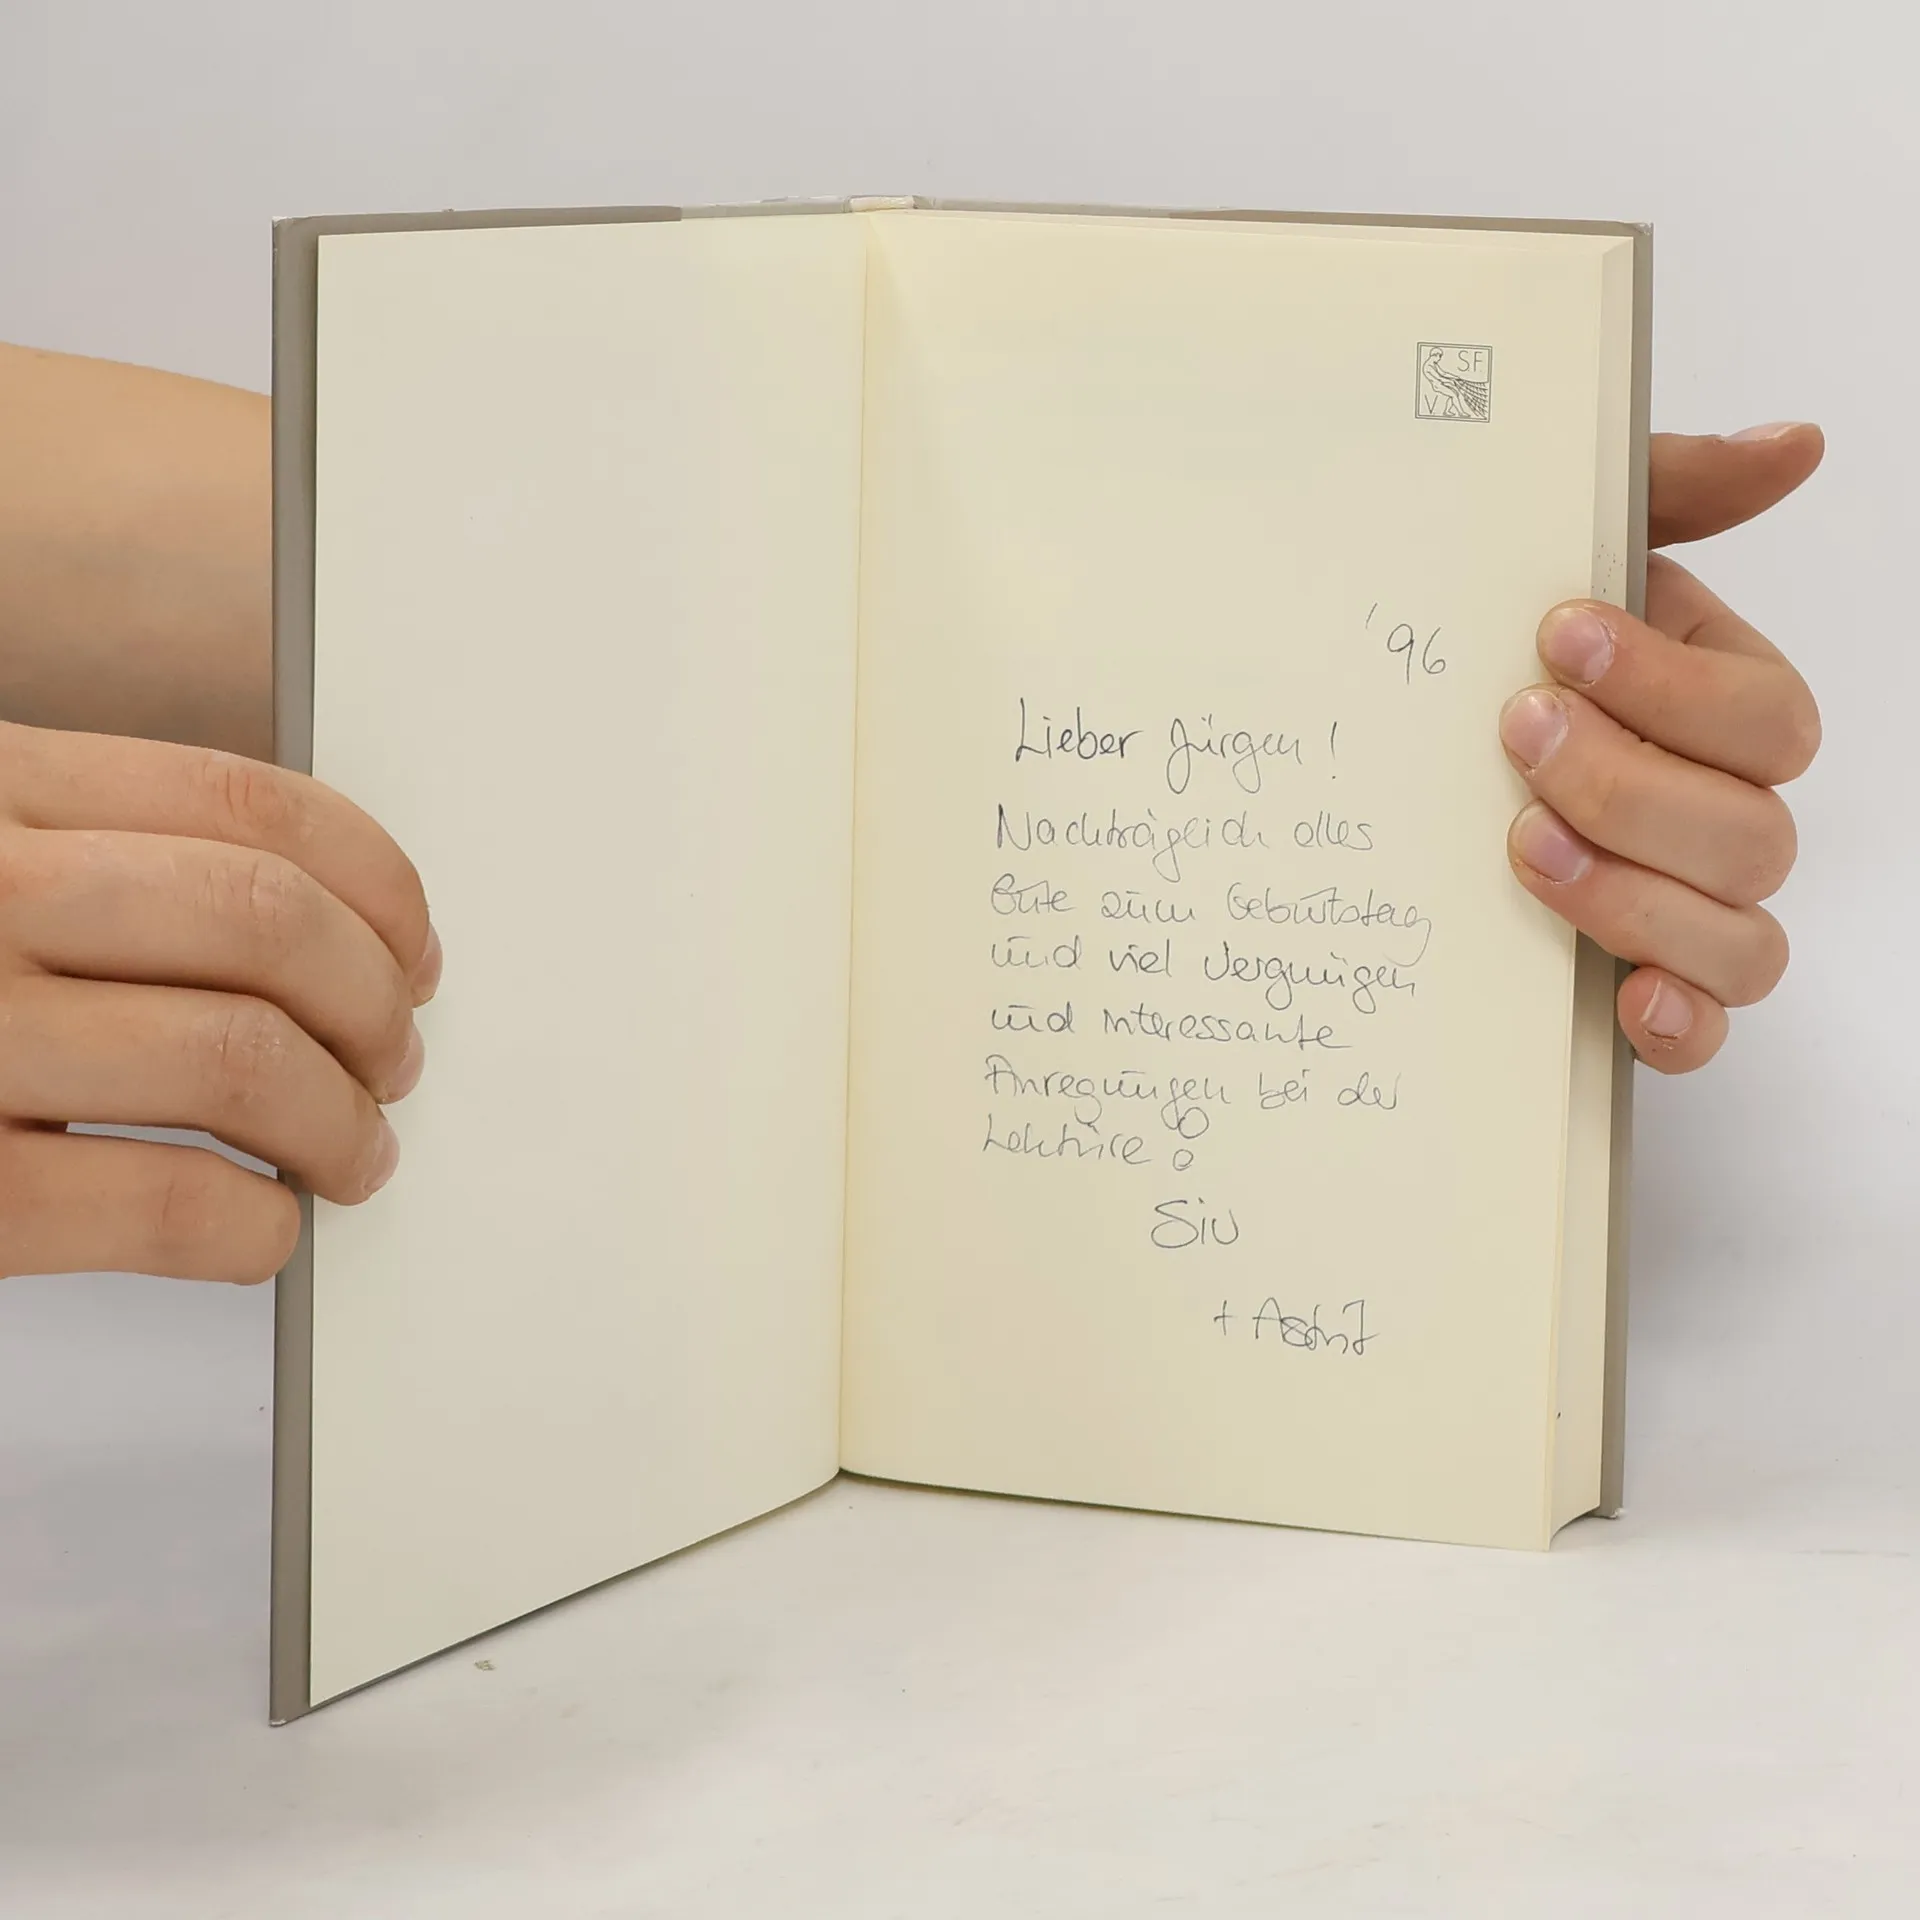 S.F.
V
'96
Lieber Jürgen!
Nachträglich alles
Gute zum Geburtstag
und viel Vergnügen
und interessante
Anregungen bei der
Lektüre!
Siv
+ Astrid